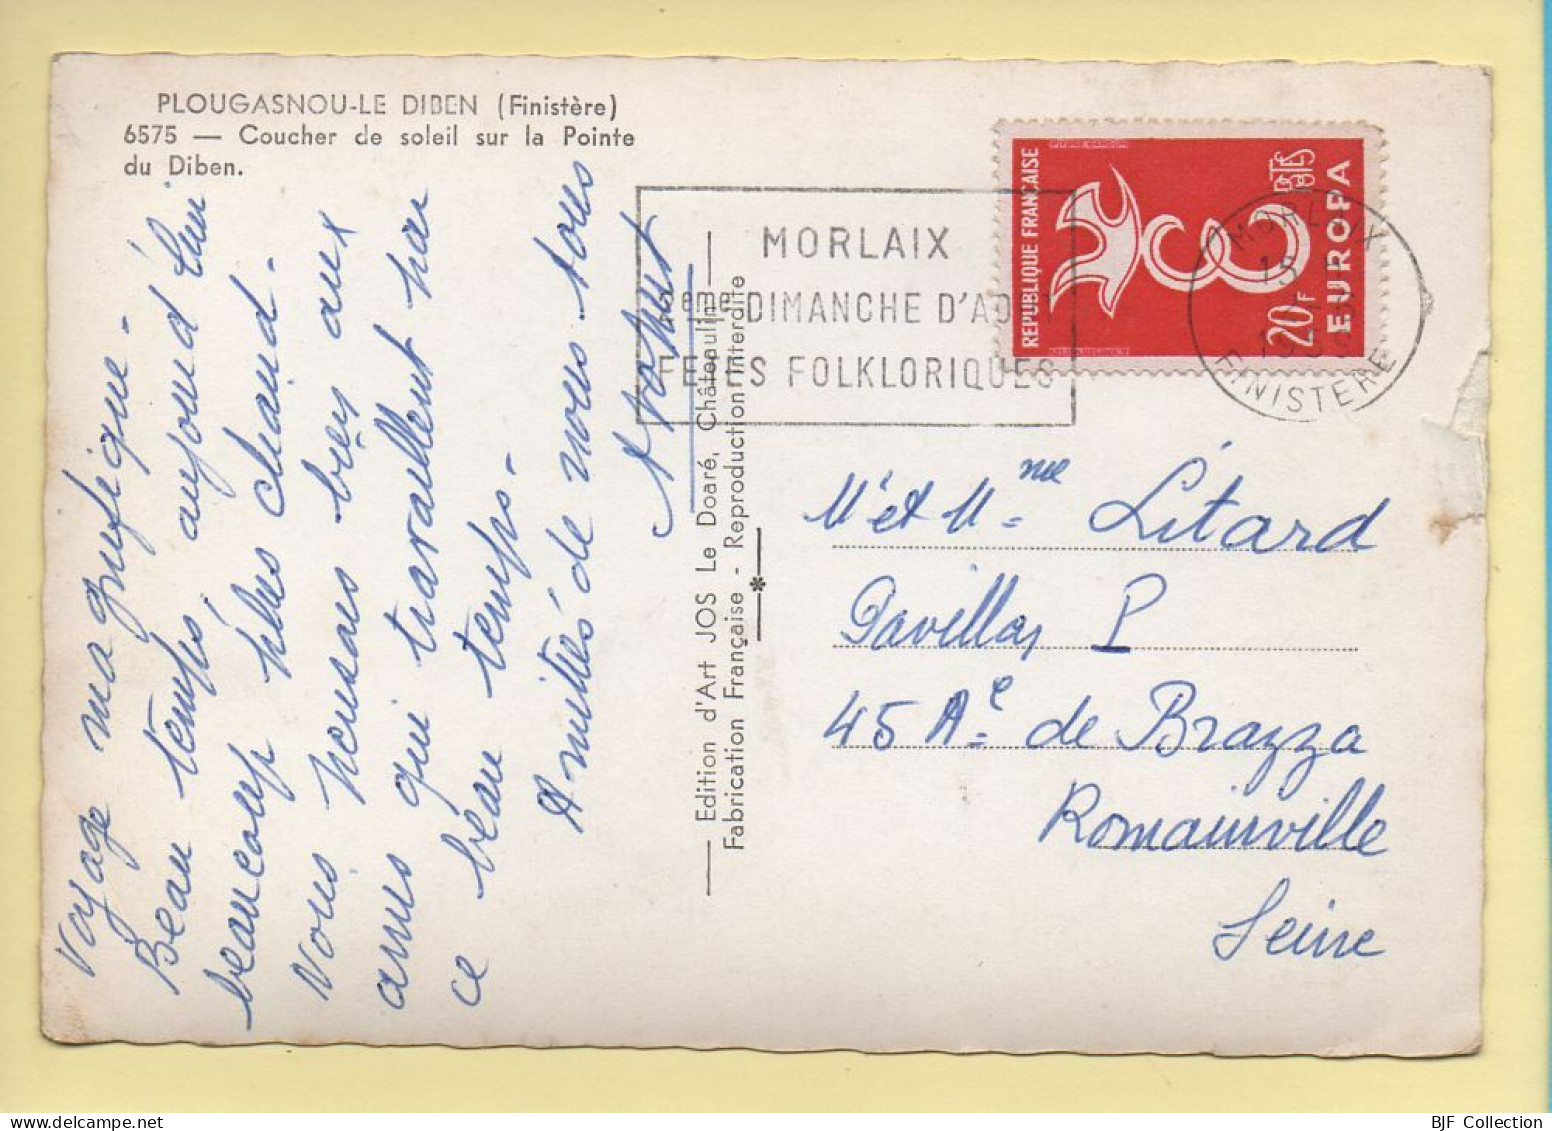 PLOUGASNOU-LE DIBEN (Finistère)
6575 — Coucher de soleil sur la Pointe
du Diben.
Voyage magnifique -
Beau temps, aujourd'hui
beaucoup plus chaud -
Nous pensons bien aux
amis qui travaillent par
ce beau temps -
Amitiés de nous tous
Edition d'Art JOS Le Doaré, Châteaulin
Fabrication Française - Reproduction Interdite
MORLAIX
2ème DIMANCHE D'AOUT
FETES FOLKLORIQUES
REPUBLIQUE FRANÇAISE
POSTES
20F
EUROPA
MORLAIX
15
1959
FINISTERE
Mr et Mme Litard
Pavillon P
45 Ae de Brazza
Romainville
Seine
BJF Collection